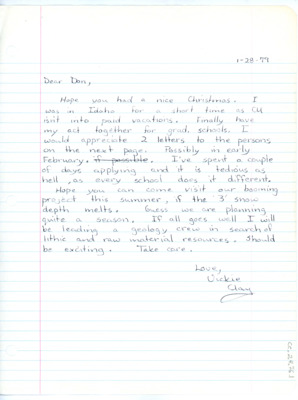 1-28-77
Dear Don,
Hope you had a nice Christmas. I
was in Idaho for a short time as CU
isn't into paid vacations. Finally have
my act together for grad. schools. I
would appreciate 2 letters to the persons
on the next page. Possibly in early
February, if possible. I've spent a couple
of days applying and it is tedious as
hell, as every school does it different.
Hope you can come visit our booming
project this summer, if the 3' snow
depth melts. Guess we are planning
quite a season. If all goes well I will
be leading a geology crew in search of
lithic and raw material resources. Should
be exciting. Take care.
Love,
Vickie
Clay